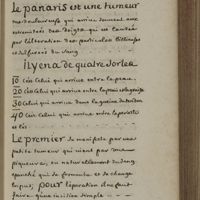 le panaris est une tumeur
tres douloureuse qui arrive souvent aux
extremités des doigts qui est causée
par l'alteration des particules
et du sang
il y en a de quatre sortes
1o Celui qui arrive entre la peau
2o Celui qui arrive entre la peau et
3o Celui qui arrive dans la gaine du tendon
4o Celui qui arrive entre le perioste
et l'os
Le premier se manifeste par une
petite tumeur qui vient par une
piqueure, ou naturellement du sang
epanché qui se fermente et se change
en pus, pour l'operation il ne faut
faire qu'une incision simple